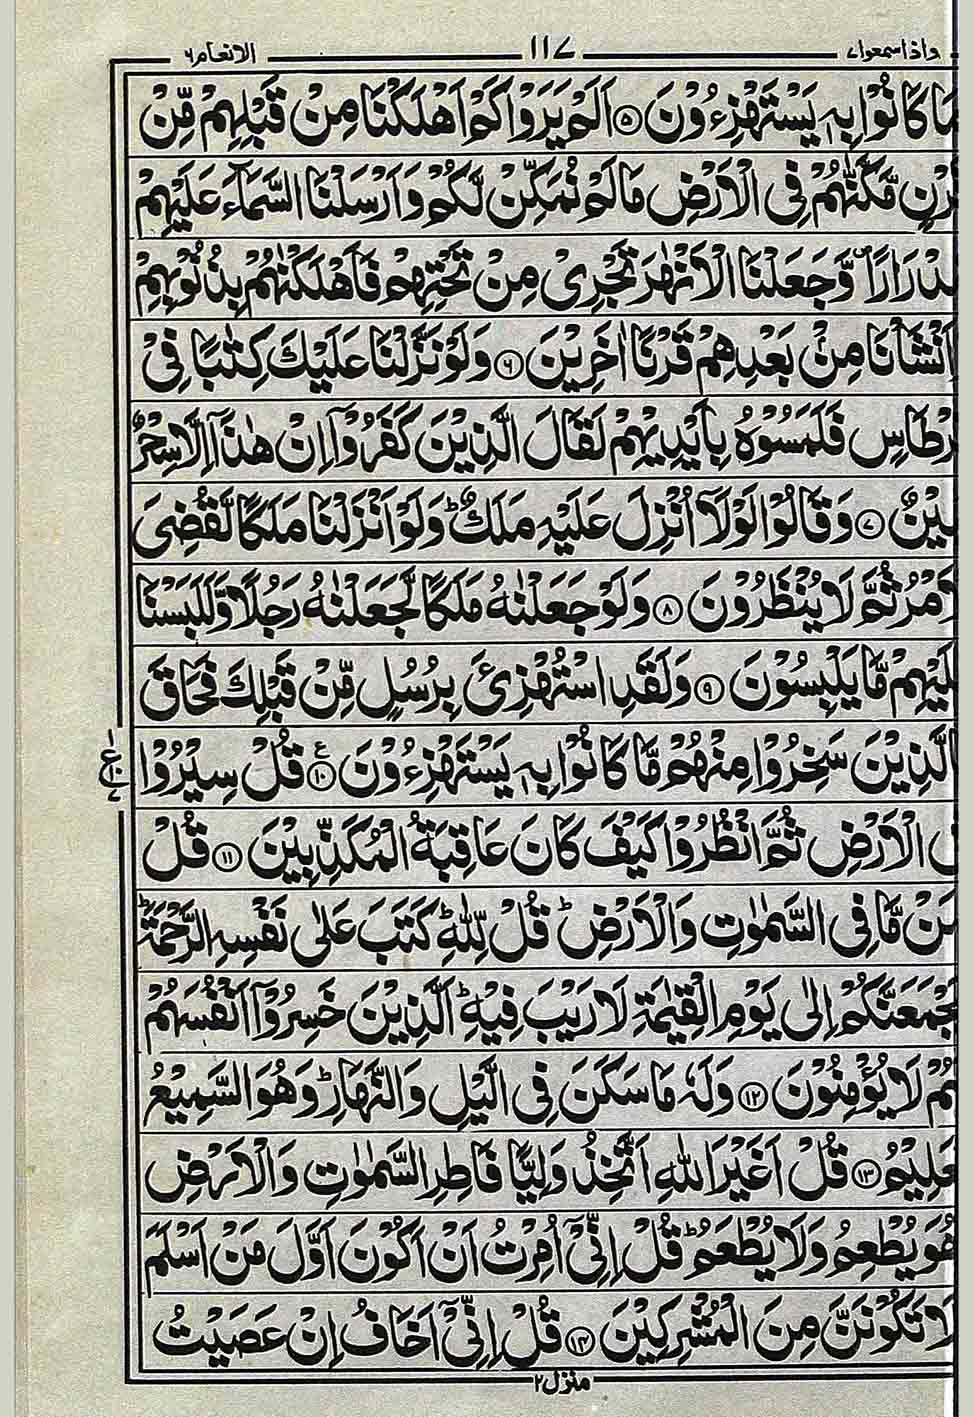 واذاسمعوا۷ ۱۱۷ الانعام۶
مَا كَانُوْا بِهٖ يَسْتَهْزِءُوْنَ ۝۵ اَلَمْ يَرَوْا كَمْ اَهْلَكْنَا مِنْ قَبْلِهِمْ مِّنْ
مَّكَّنّٰهُمْ فِى الْاَرْضِ مَا لَمْ نُمَكِّنْ لَّكُمْ وَاَرْسَلْنَا السَّمَآءَ عَلَيْهِمْ
وَّجَعَلْنَا الْاَنْهٰرَ تَجْرِىْ مِنْ تَحْتِهِمْ فَاَهْلَكْنٰهُمْ بِذُنُوْبِهِمْ
اَنْشَاْنَا مِنْۢ بَعْدِهِمْ قَرْنًا اٰخَرِيْنَ ۝۶ وَلَوْ نَزَّلْنَا عَلَيْكَ كِتٰبًا فِىْ
فَلَمَسُوْهُ بِاَيْدِيْهِمْ لَقَالَ الَّذِيْنَ كَفَرُوْۤا اِنْ هٰذَاۤ اِلَّا سِحْرٌ
۝۷ وَقَالُوْا لَوْلَاۤ اُنْزِلَ عَلَيْهِ مَلَكٌ ؕ وَلَوْ اَنْزَلْنَا مَلَكًا لَّقُضِىَ
ثُمَّ لَا يُنْظَرُوْنَ ۝۸ وَلَوْ جَعَلْنٰهُ مَلَكًا لَّجَعَلْنٰهُ رَجُلًا وَّلَلَبَسْنَا
مَّا يَلْبِسُوْنَ ۝۹ وَلَقَدِ اسْتُهْزِئَ بِرُسُلٍ مِّنْ قَبْلِكَ فَحَاقَ
الَّذِيْنَ سَخِرُوْا مِنْهُمْ مَّا كَانُوْا بِهٖ يَسْتَهْزِءُوْنَ ۝۱۰ ع قُلْ سِيْرُوْا
الْاَرْضِ ثُمَّ انْظُرُوْا كَيْفَ كَانَ عَاقِبَةُ الْمُكَذِّبِيْنَ ۝۱۱ قُلْ
مَّا فِى السَّمٰوٰتِ وَالْاَرْضِ ؕ قُلْ لِّلّٰهِ ؕ كَتَبَ عَلٰى نَفْسِهِ الرَّحْمَةَ ؕ
اِلٰى يَوْمِ الْقِيٰمَةِ لَا رَيْبَ فِيْهِ ؕ اَلَّذِيْنَ خَسِرُوْۤا اَنْفُسَهُمْ
لَا يُؤْمِنُوْنَ ۝۱۲ وَلَهٗ مَا سَكَنَ فِى الَّيْلِ وَالنَّهَارِ ؕ وَهُوَ السَّمِيْعُ
۝۱۳ قُلْ اَغَيْرَ اللّٰهِ اَتَّخِذُ وَلِيًّا فَاطِرِ السَّمٰوٰتِ وَالْاَرْضِ
هُوَ يُطْعِمُ وَلَا يُطْعَمُ ؕ قُلْ اِنِّىْۤ اُمِرْتُ اَنْ اَكُوْنَ اَوَّلَ مَنْ اَسْلَمَ
لَا تَكُوْنَنَّ مِنَ الْمُشْرِكِيْنَ ۝۱۴ قُلْ اِنِّىْۤ اَخَافُ اِنْ عَصَيْتُ
منزل۲